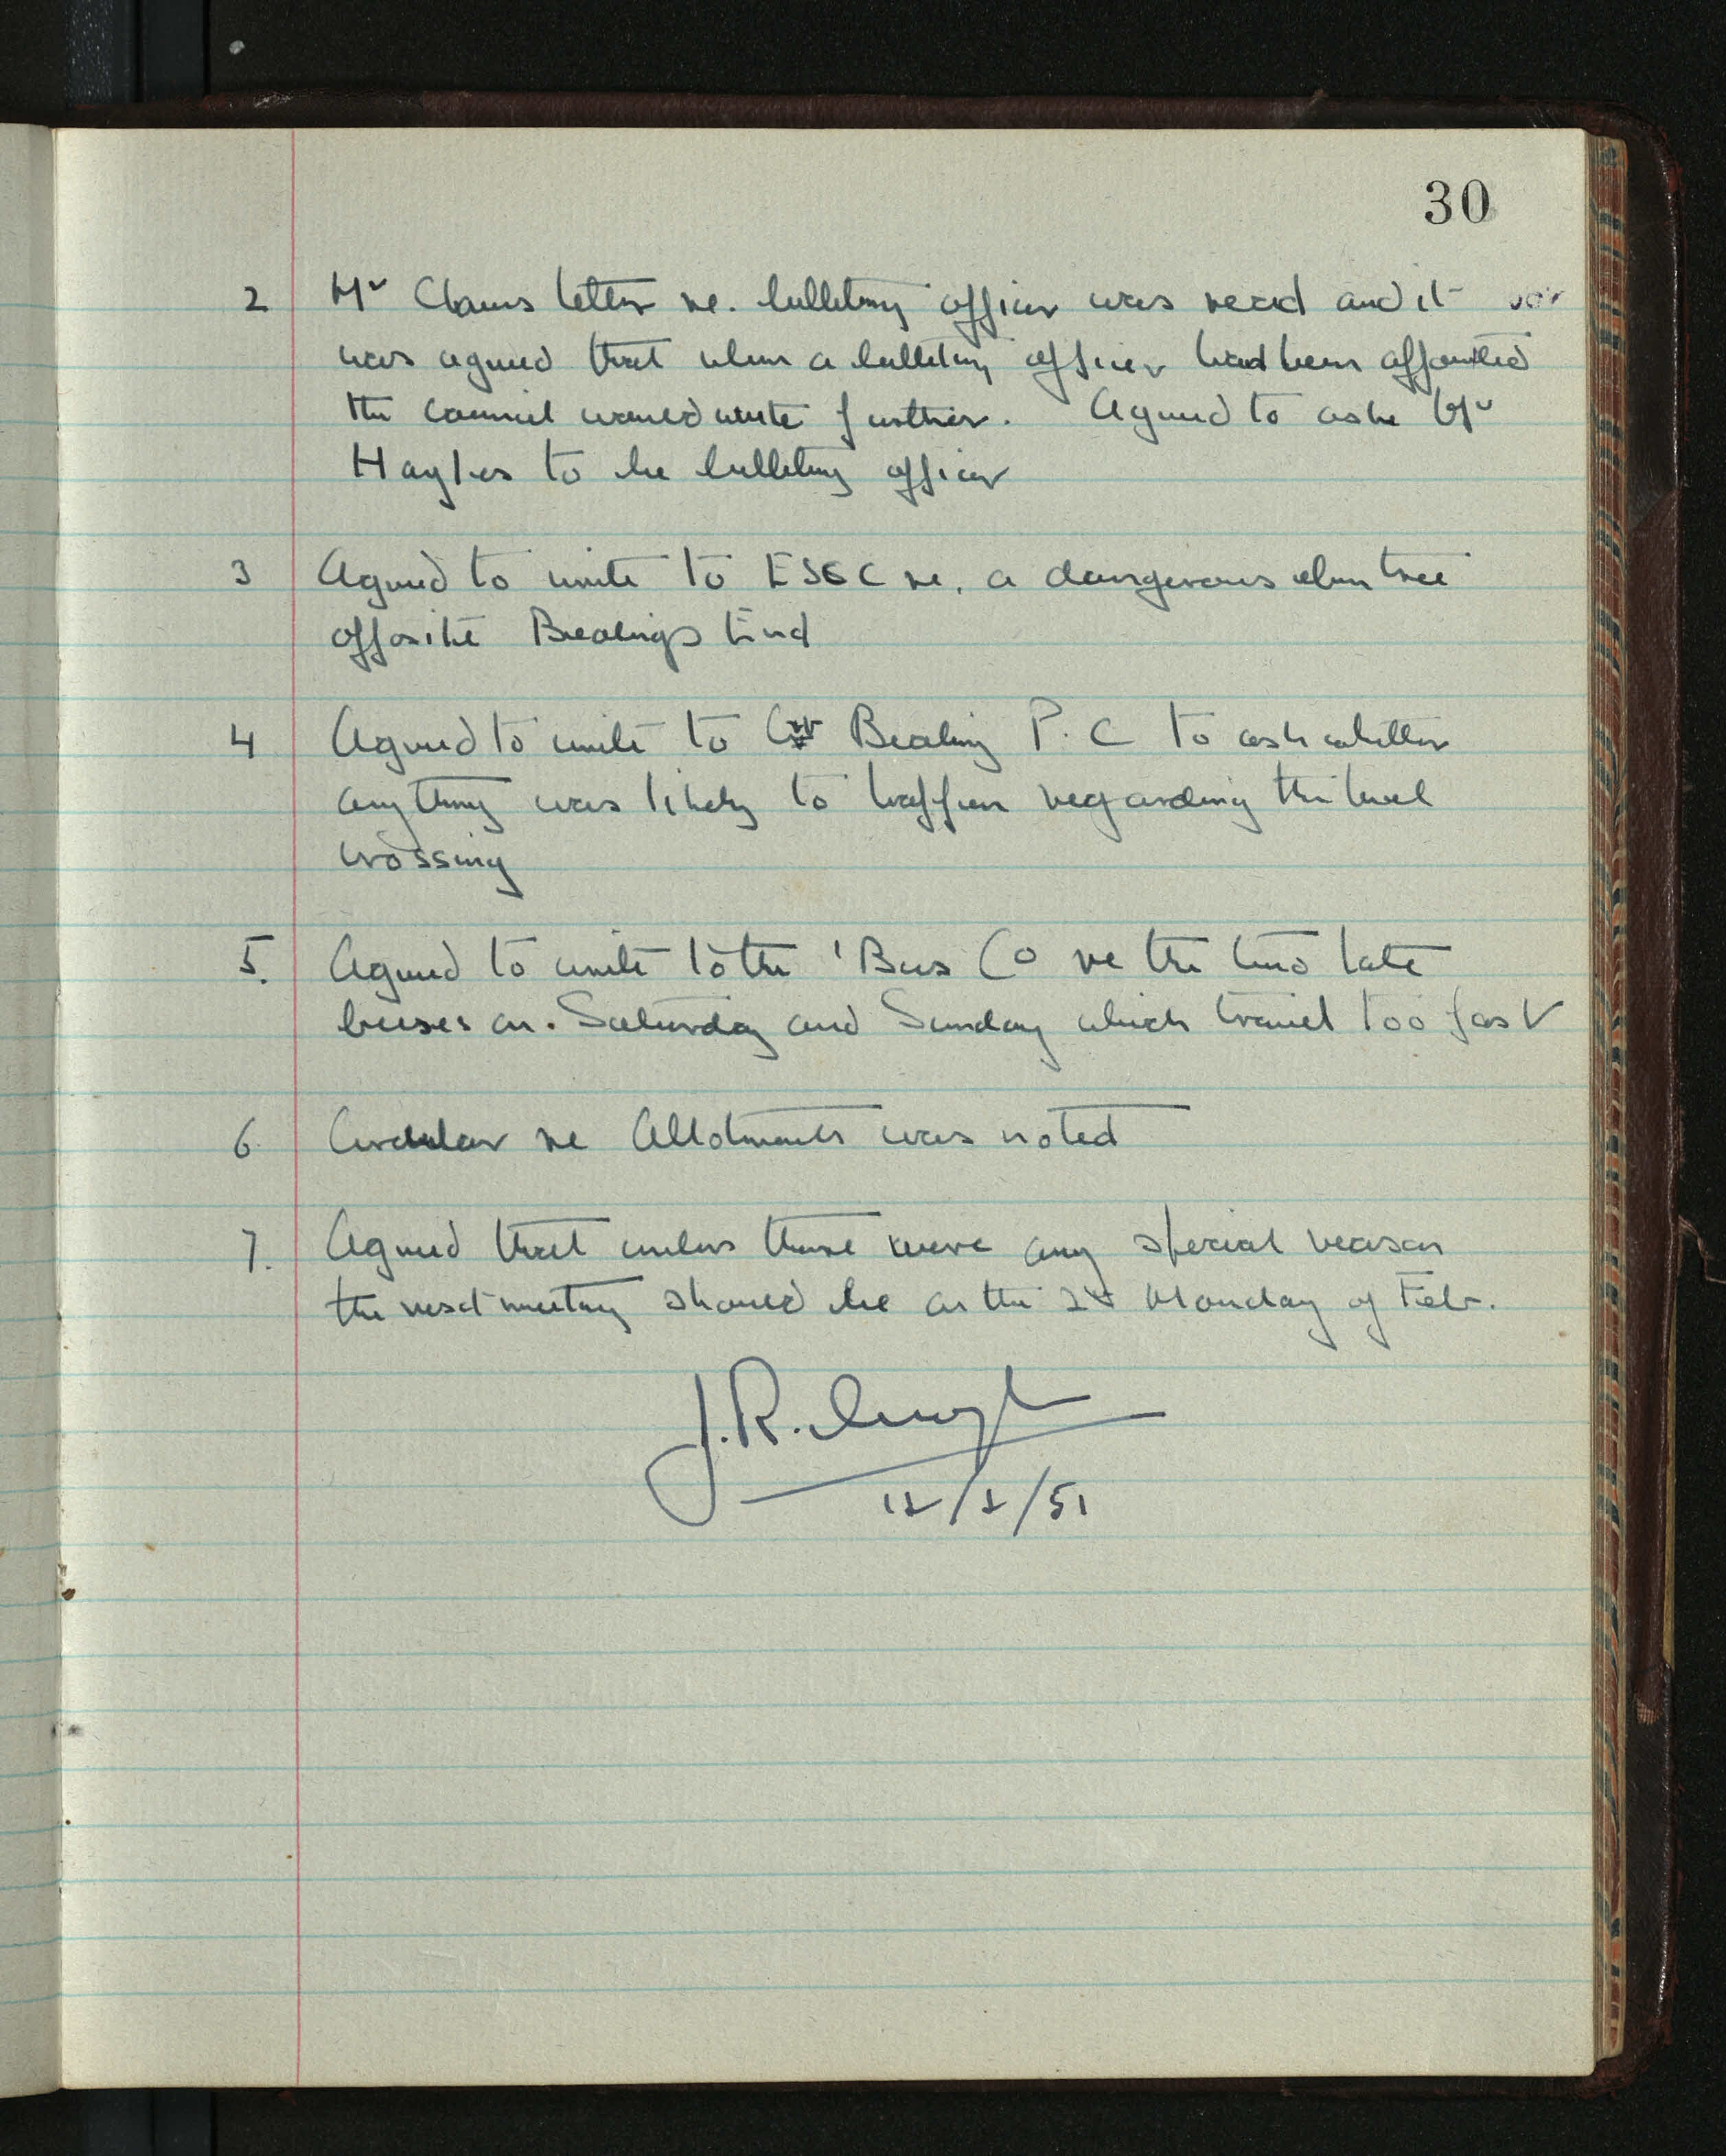 30
2 Mr letter re. billeting officer was read and it
was agreed that when a billeting officer had been appointed
the Council would write further. Agreed to ask Mr
to be billeting officer
3 Agreed to write to ESCC re. a dangerous elm tree
opposite Bealings End
4 Agreed to write to Gt Bealing P.C to ask whether
anything was likely to happen regarding the level
crossing
5. Agreed to write to the 'Bus Co re the two late
buses on. Saturday and Sunday which travel too fast
6 Circular re Allotments was noted
7. Agreed that unless there were any special reason
the next meeting should be on the 2d Monday of Feb.
J.R.
12/2/51